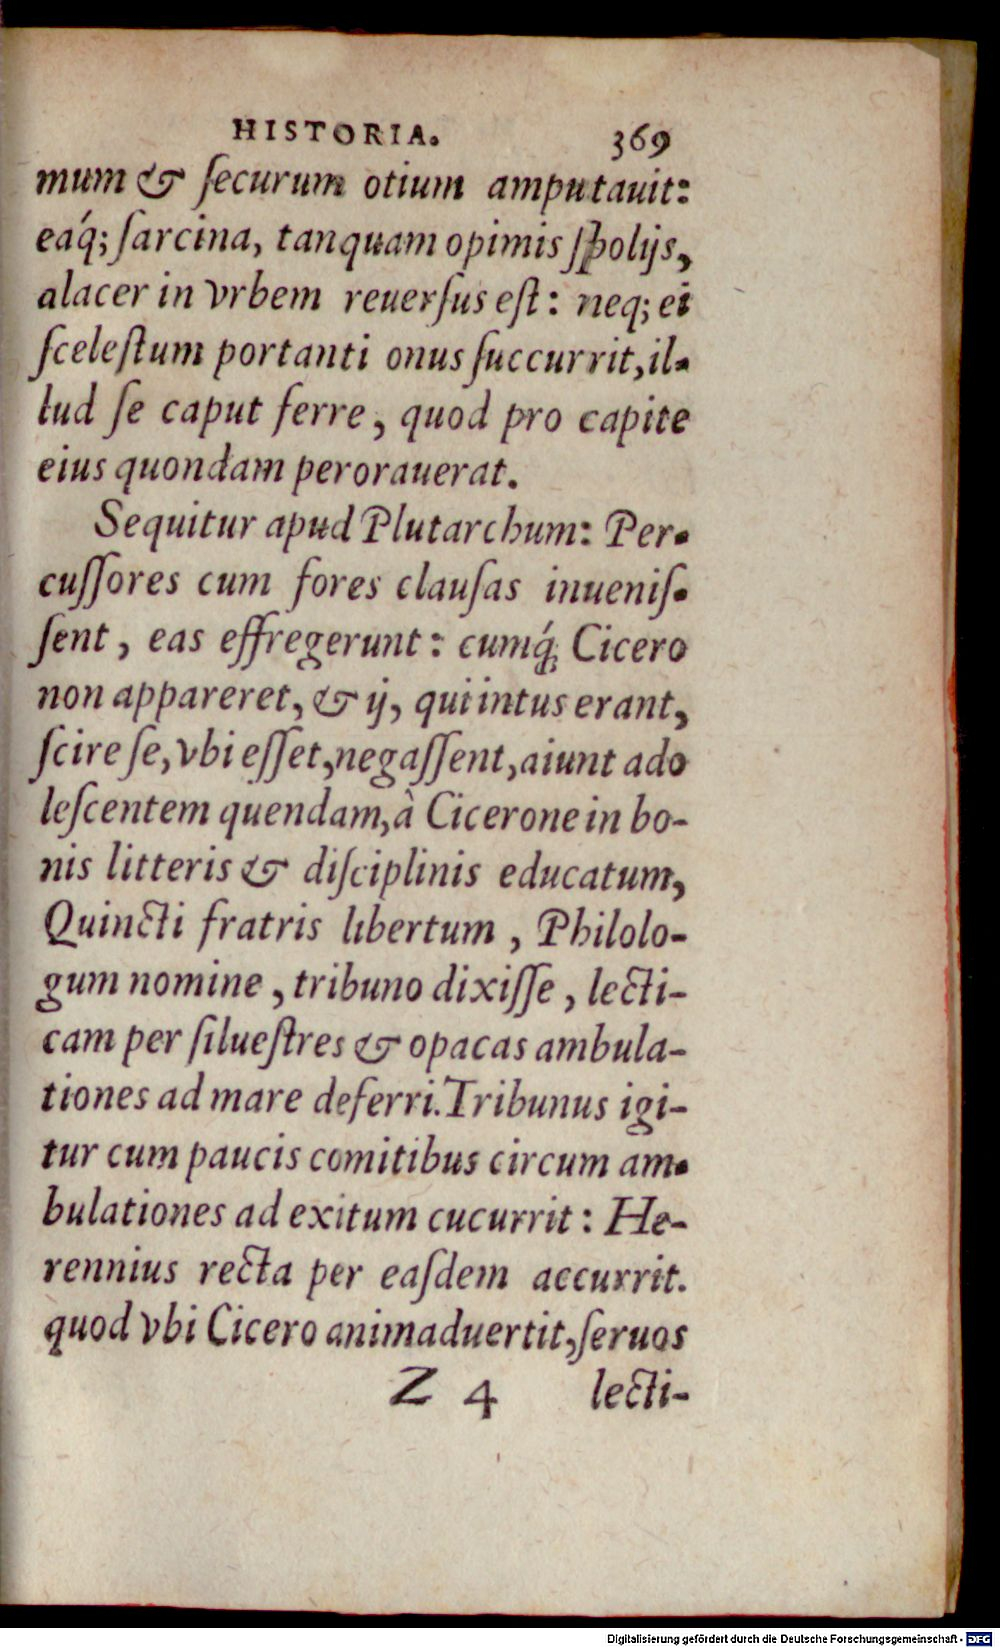 HISTORIA. 369
mum & ſecurum otium amputauit:
eaq́; ſarcina, tanquam opimis ſpolijs,
alacer in vrbem reuerſus eſt: neq; ei
ſceleſtum portanti onus ſuccurrit, il-
lud ſe caput ferre, quod pro capite
eius quondam perorauerat.
Sequitur apud Plutarchum: Per-
cuſſores cum fores clauſas inueniſ-
ſent, eas effregerunt: cumq́; Cicero
non appareret, & ij, qui intus erant,
ſcire ſe, vbi eſſet, negaſſent, aiunt ado
leſcentem quendam, à Cicerone in bo-
nis litteris & diſciplinis educatum,
Quincti fratris libertum, Philolo-
gum nomine, tribuno dixiſſe, lecti-
cam per ſilueſtres & opacas ambula-
tiones ad mare deferri. Tribunus igi-
tur cum paucis comitibus circum am-
bulationes ad exitum cucurrit: He-
rennius recta per eaſdem accurrit.
quod vbi Cicero animaduertit, ſeruos
Z 4 lecti-
Digitalisierung gefördert durch die Deutsche Forschungsgemeinschaft - DFG